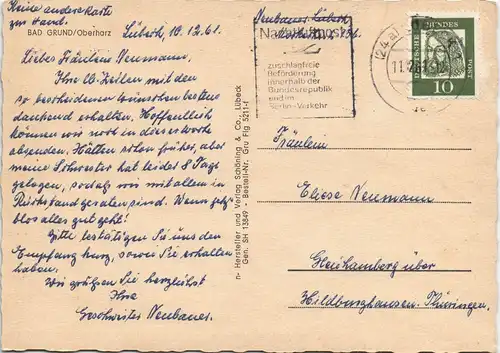 Keine andere Karte
zur Hand.
BAD GRUND/Oberharz
Lübeck, 10.12.61.
Liebes Fräulein Neumann,
Ihre lb. Zeilen mit den
so bescheidenen Wünschen bestens
dankend erhalten. Hoffentlich
können wir noch in dieser Woche
absenden. Hätten schon früher, aber
meine Schwester hat leider 8 Tage
gelegen, sodaß wir mit allem in
Rückstand geraten sind. Wenn jetzt
blos alles gut geht!
Bitte bestätigen Sie uns den
Empfang kurz, sowie Sie erhalten
haben.
Wir grüßen Sie herzlichst
Ihre
Geschwister Neubauer.
n- Hersteller und Verlag Schöning & Co., Lübeck
Gen. SH 13849 - Bestell-Nr. Gru Flg 5211-f
Neubauer, Lübeck
Nachtluftpost
zuschlagfreie
Beförderung
innerhalb der
Bundesrepublik
und im
Berlin-Verkehr
(24a)
DEUTSCHE BUNDESPOST
10
Fräulein
Eliese Neumann
Gleichamberg über
Hildburghausen-Thüringen.